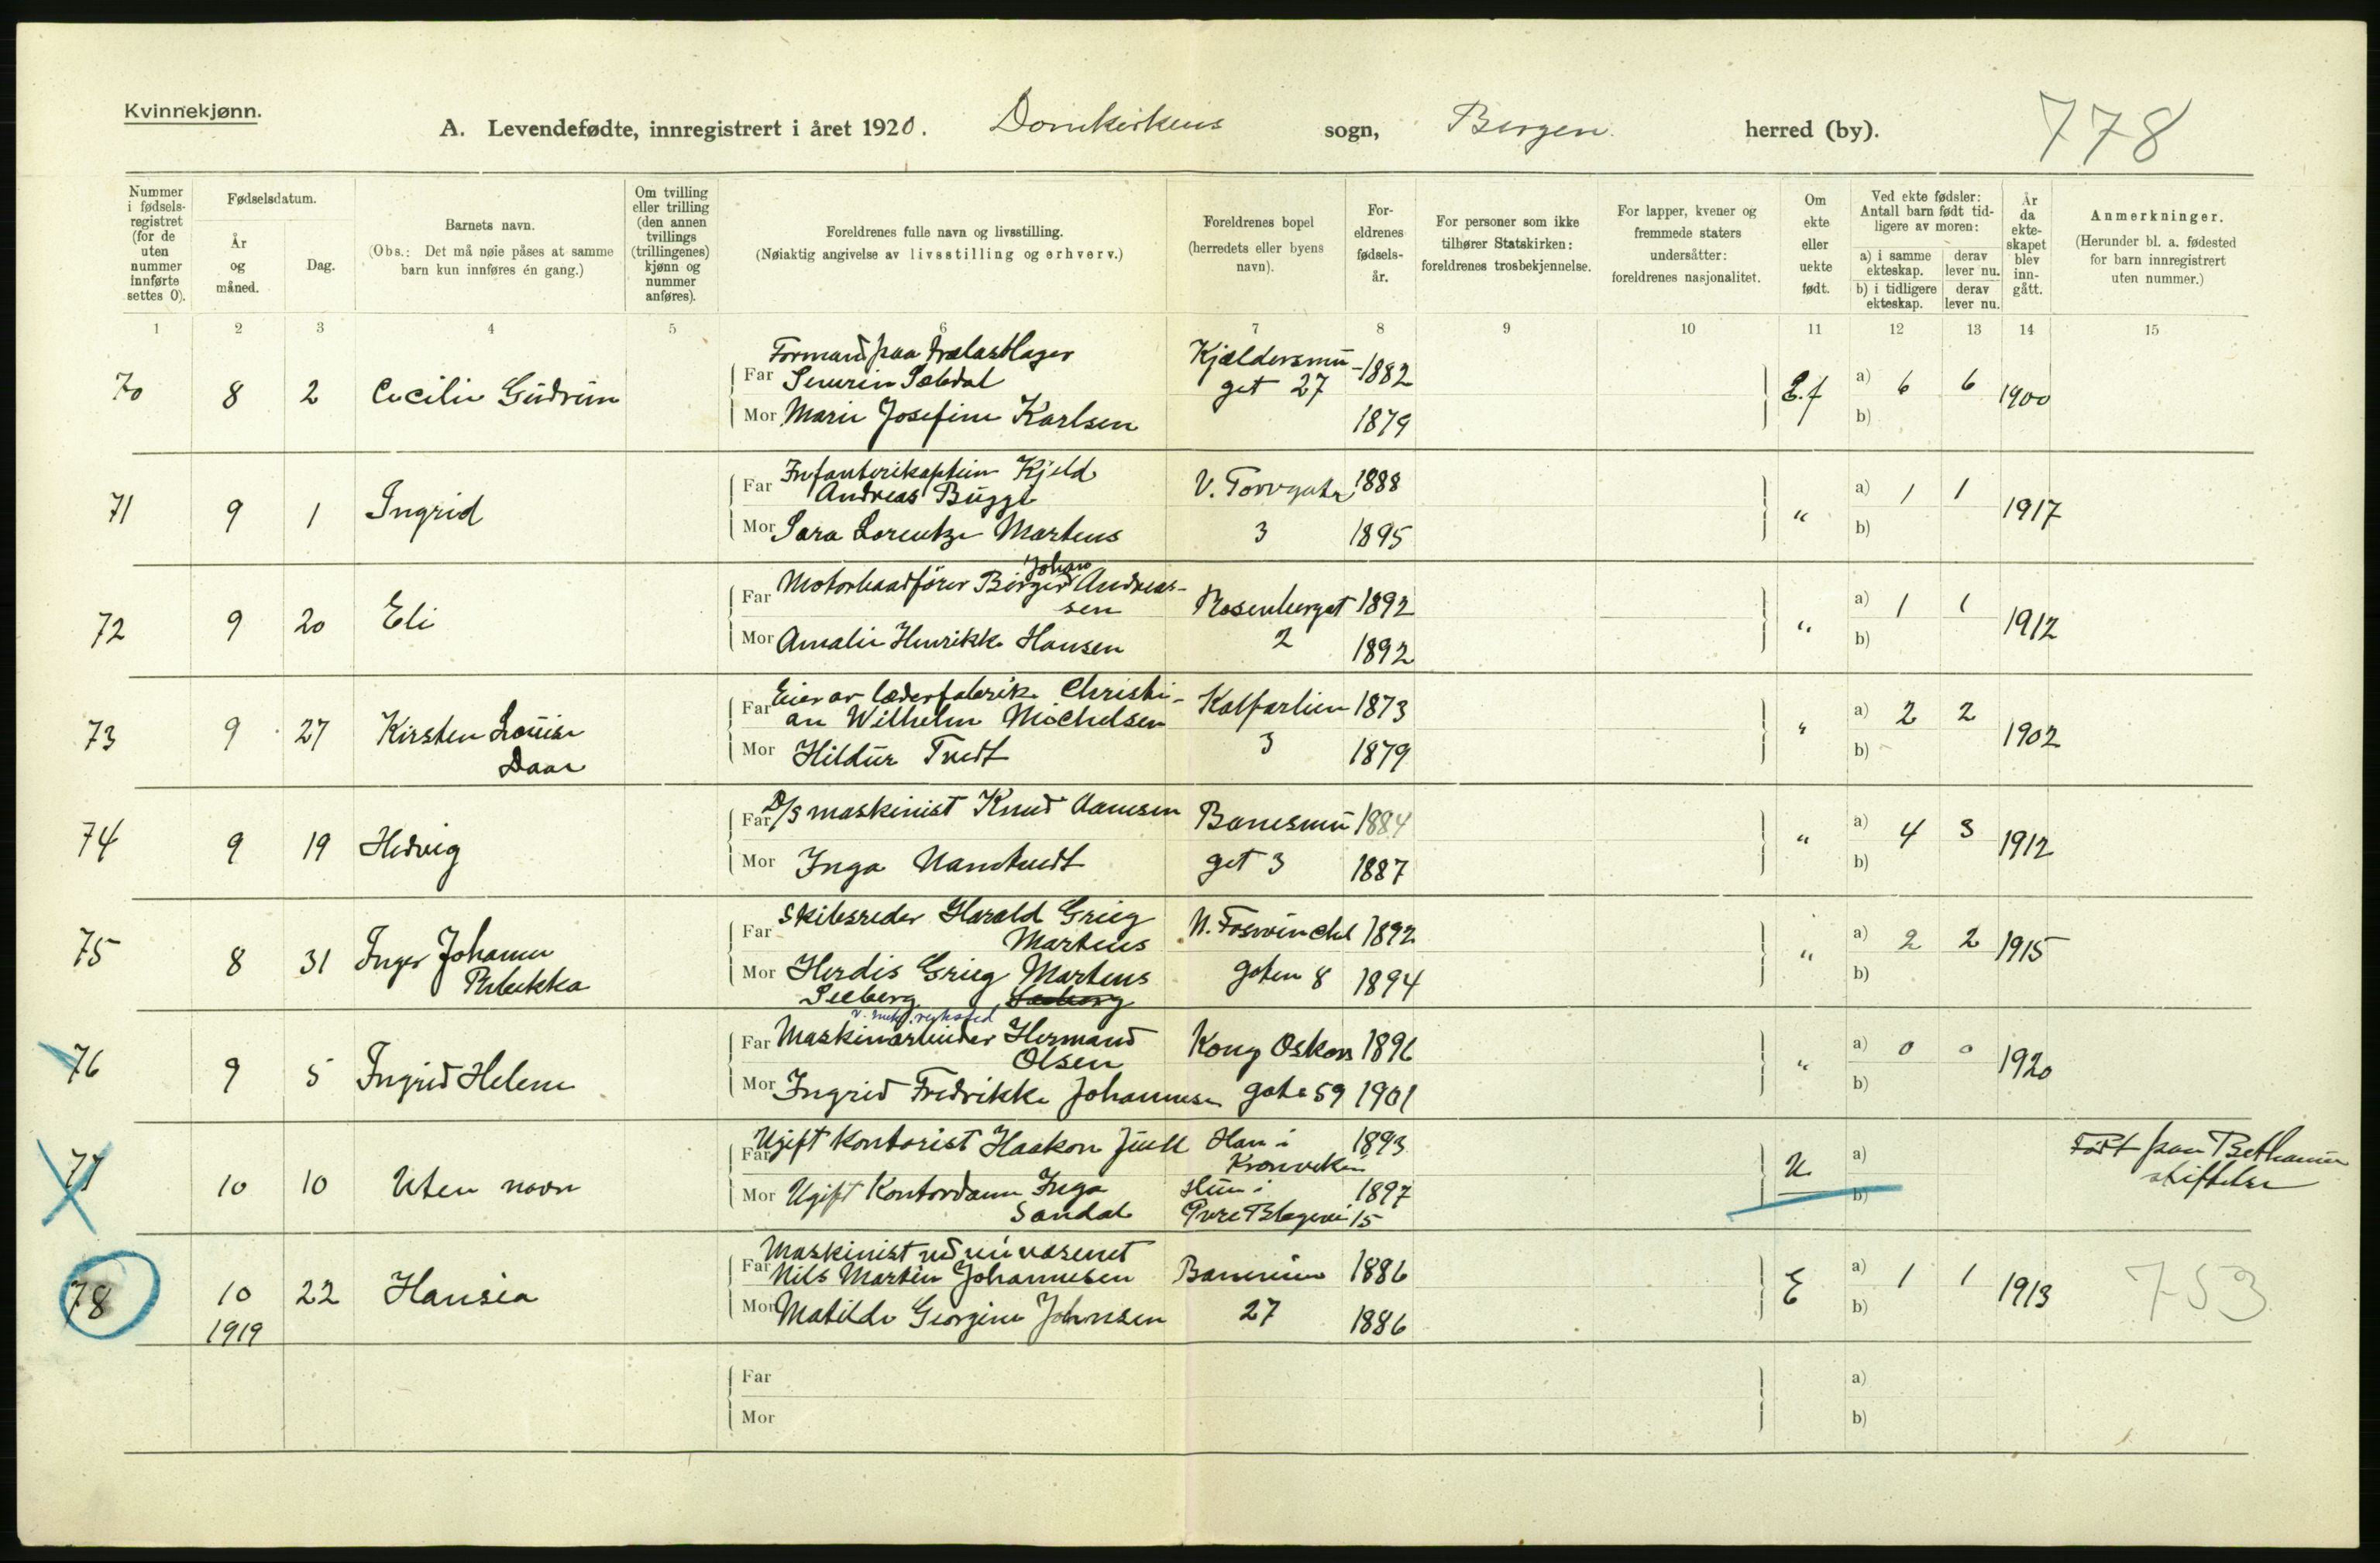 Kvinnekjønn.
A. Levendefødte, innregistrert i året 1920. Domkirkens sogn, Bergen herred (by). 778
Nummer i fødsels-registret (for de uten nummer innførte settes 0).
Fødselsdatum.
År og måned.
Dag.
Barnets navn.
(Obs.: Det må nøie påses at samme barn kun innføres én gang.)
Om tvilling eller trilling (den annen tvillings (trillingenes) kjønn og nummer anføres).
Foreldrenes fulle navn og livsstilling.
(Nøiaktig angivelse av livsstilling og erhverv.)
Foreldrenes bopel (herredets eller byens navn).
For-eldrenes fødsels-år.
For personer som ikke tilhører Statskirken: foreldrenes trosbekjennelse.
For lapper, kvener og fremmede staters undersåtter: foreldrenes nasjonalitet.
Om ekte eller uekte født.
Ved ekte fødsler: Antall barn født tid-ligere av moren:
a) i samme ekteskap. derav lever nu.
b) i tidligere ekteskap. derav lever nu.
År da ekte-skapet blev inn-gått.
Anmerkninger.
(Herunder bl. a. fødested for barn innregistrert uten nummer.)
1 2 3 4 5 6 7 8 9 10 11 12 13 14 15
Formand paa trælastlager Kjældersmu
70 8 2 Cecilie Gudrun Far Severin Sæledal get 27 1882 E.f a) 6 6 1900
Mor Marie Josefine Karlsen 1879 b)
Far Infanterikaptein Kjeld
71 9 1 Ingrid Andreas Bugge V. Torvgate 1888 " a) 1 1 1917
Mor Sara Lorentze Martens 3 1895 b)
Johan
Far Motorbaadfører Birger Andreas-
72 9 20 Eli sen Rosenberggt 1892 " a) 1 1 1912
Mor Amalie Henrikke Hansen 2 1892 b)
Far Eier av læderfabrik Christi-
73 9 27 Kirsten Louise an Wilhelm Michelsen Kalfarlien 1873 " a) 2 2 1902
Daae Mor Hildur Tvedt 3 1879 b)
74 9 19 Hedvig Far D/S maskinist Knud Aamsen Banesmu 1884 " a) 4 3 1912
Mor Inga Namtvedt get 3 1887 b)
Far Skibsreder Harald Grieg
75 8 31 Inger Johanne Martens N. Fosswinckel 1892 " a) 2 2 1915
Rebekka Mor Herdis Grieg Martens gaten 8 1894 b)
Seeberg Seeberg
v. mek. verksted
Far Maskinarbeider Hermand
76 9 5 Ingrid Helene Olsen Kong Oskars 1896 " a) 0 0 1920
Mor Ingrid Fredrikke Johannesen gate 59 1901 b)
Far Ugift Kontorist Haakon Juell Han i 1893 a) Født paa Bethanie
77 10 10 Uten navn Kronviken U stiftelse
Mor Ugift Kontordame Inga Hun i 1897 b)
Sandal 15
Maskinist ved
78 10 22 Hansia Far Nils Martin Johannesen 1886 E a) 1 1 1913 753
1919 Mor Matilde Georgine Johnsen 27 1886 b)
Far a)
Mor b)